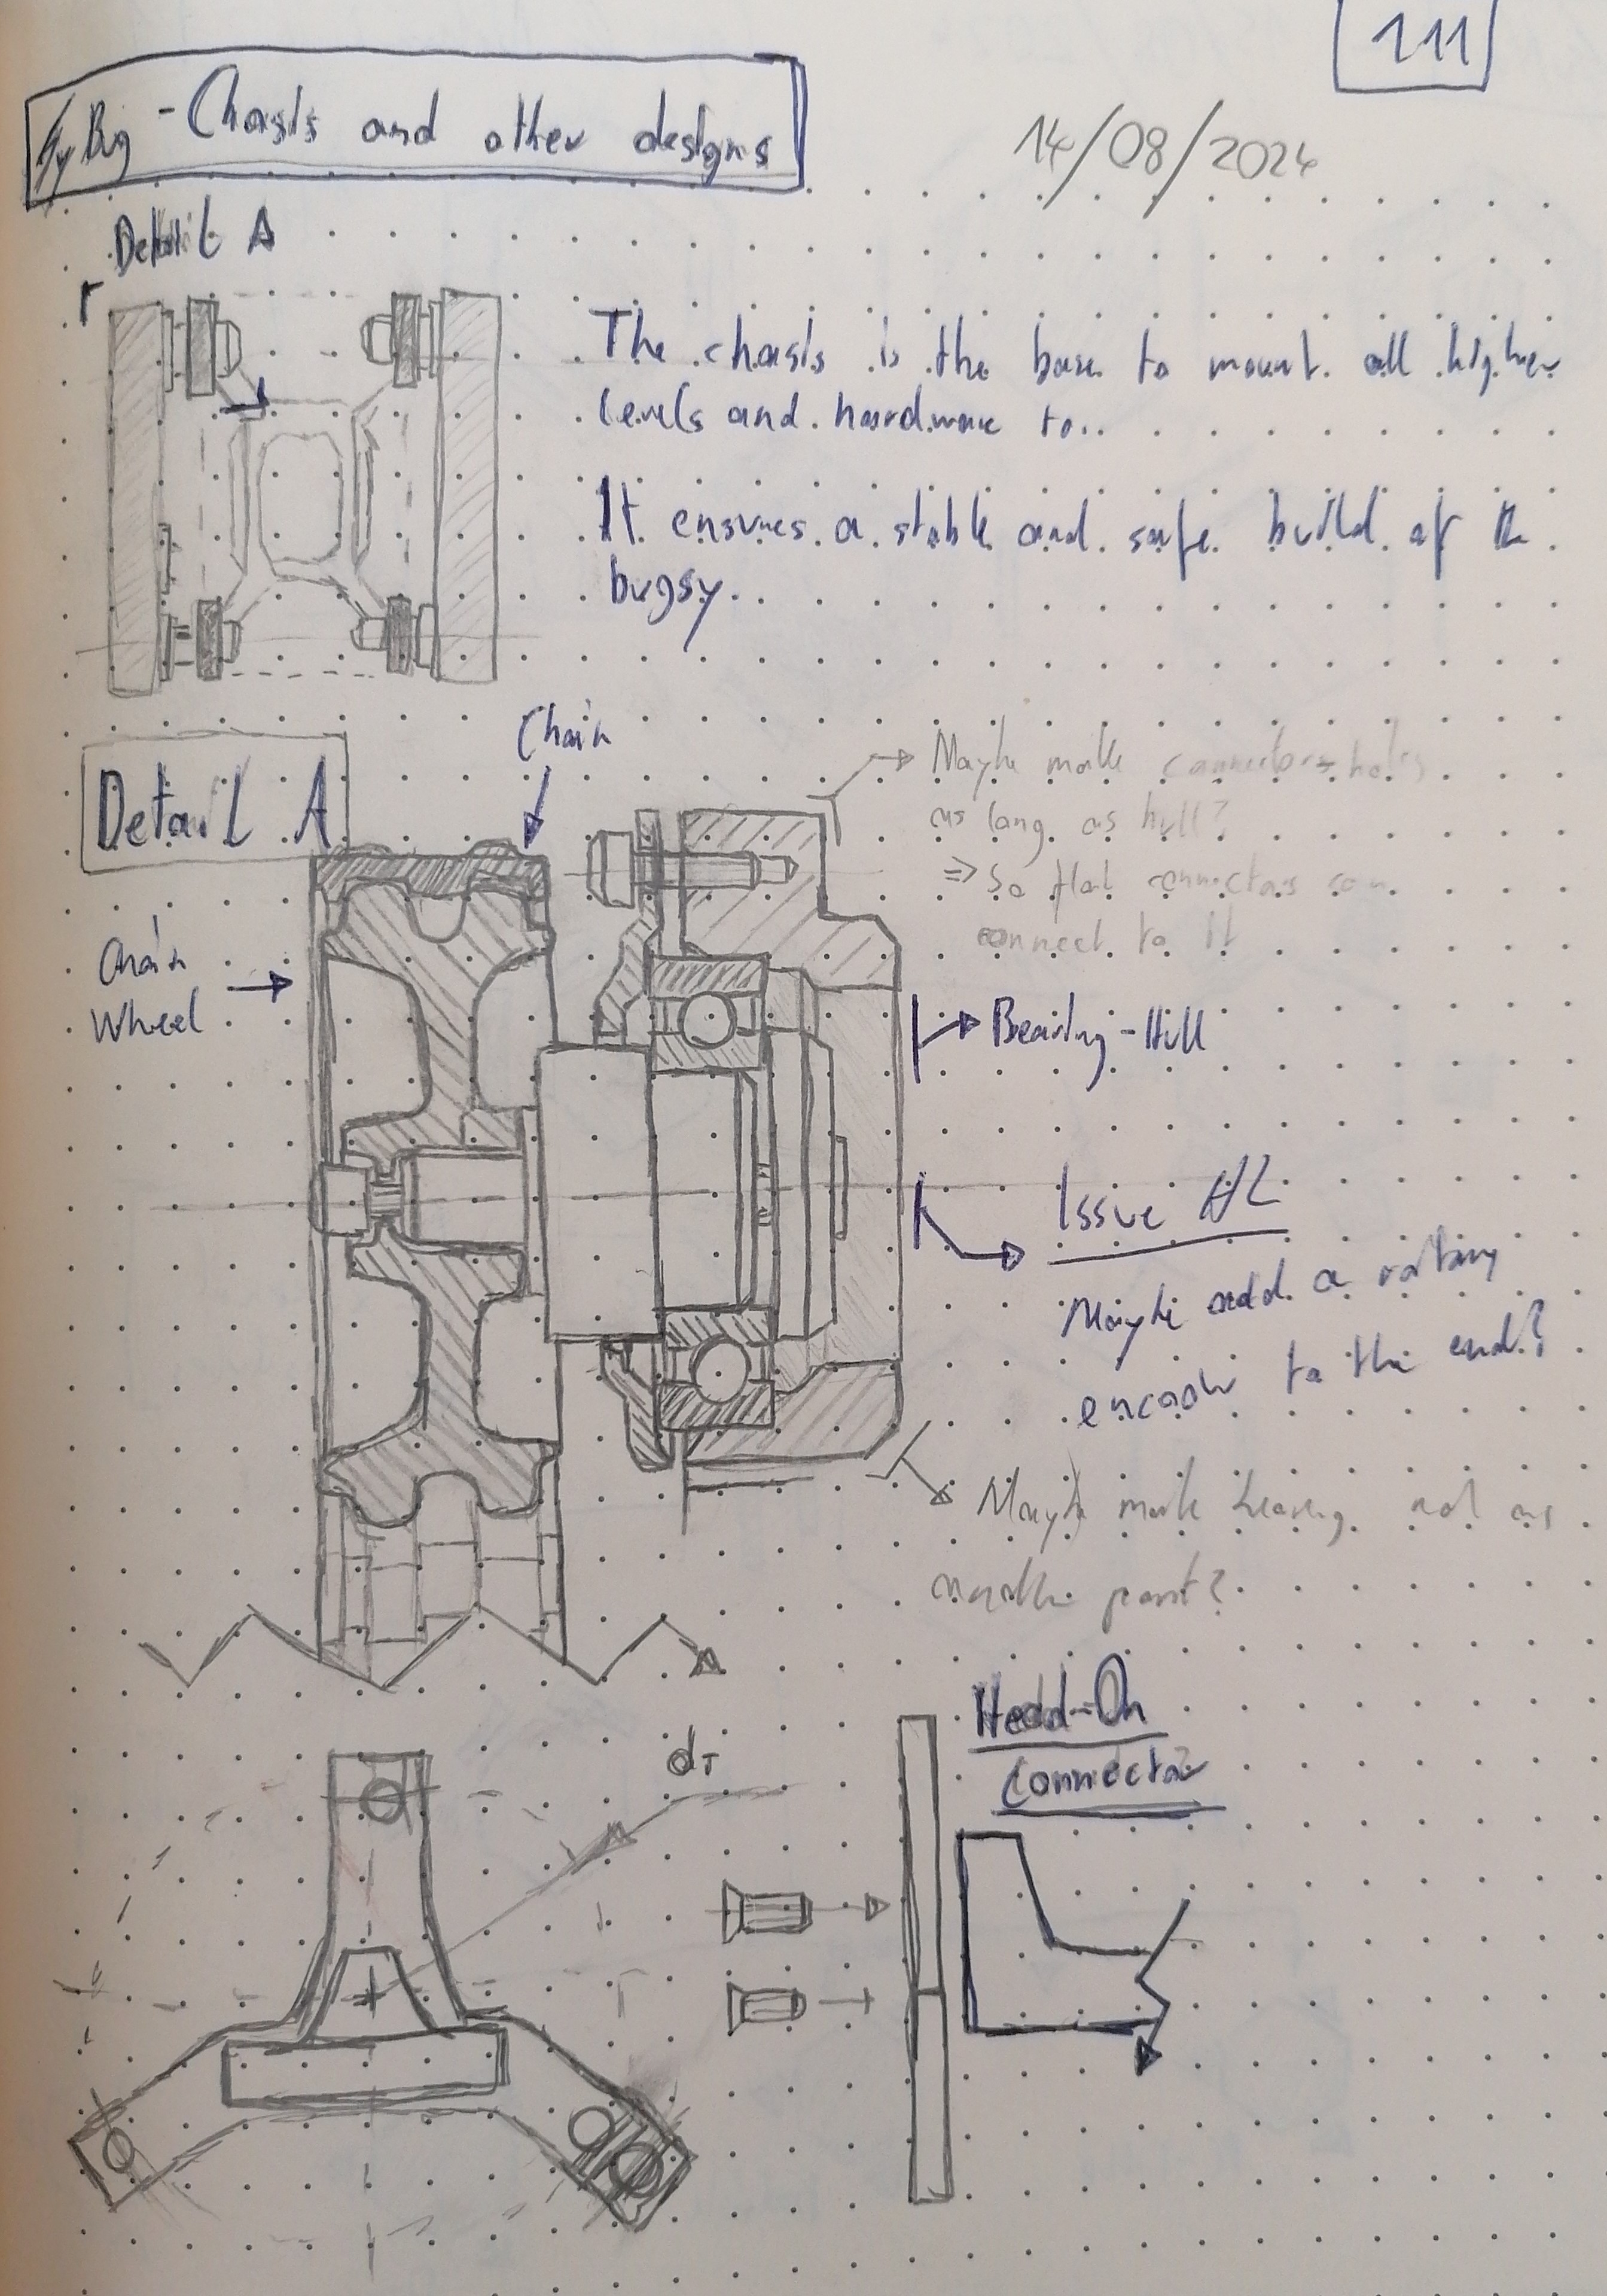 111
HyBug - Chasis and other designs
14/08/2024
Detail A
The chasis is the base to mount all higher
levels and hardware to..
It ensures a stable and safe build of the
bugsy.
Chain
Detail A
Maybe make connectors holes
as long as hull?
=> So flat connectors can
connect to it
Chain
Wheel
Bearing-Hull
Issue
Maybe add a rotary
encoder to the end?
Maybe make bearing not as
another part?
Head-On
Connector
dT